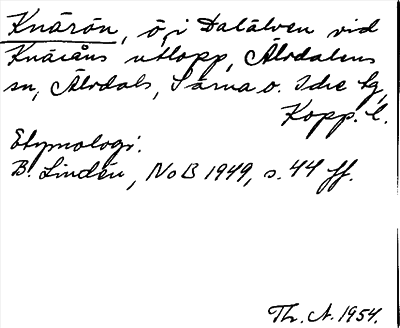 Knärön, ö, i Dalälven vid
Knäråns utlopp, Älvdalens
sn, Älvdals, Särna o. Idre tg,
Kopp. l.
Etymologi:
B. Lindén, NoB 1949, s. 44 ff.
Th. A. 1954.